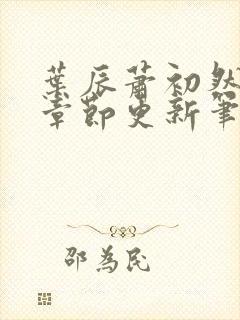 葉辰蕭初然
章節更新筆
邵為民